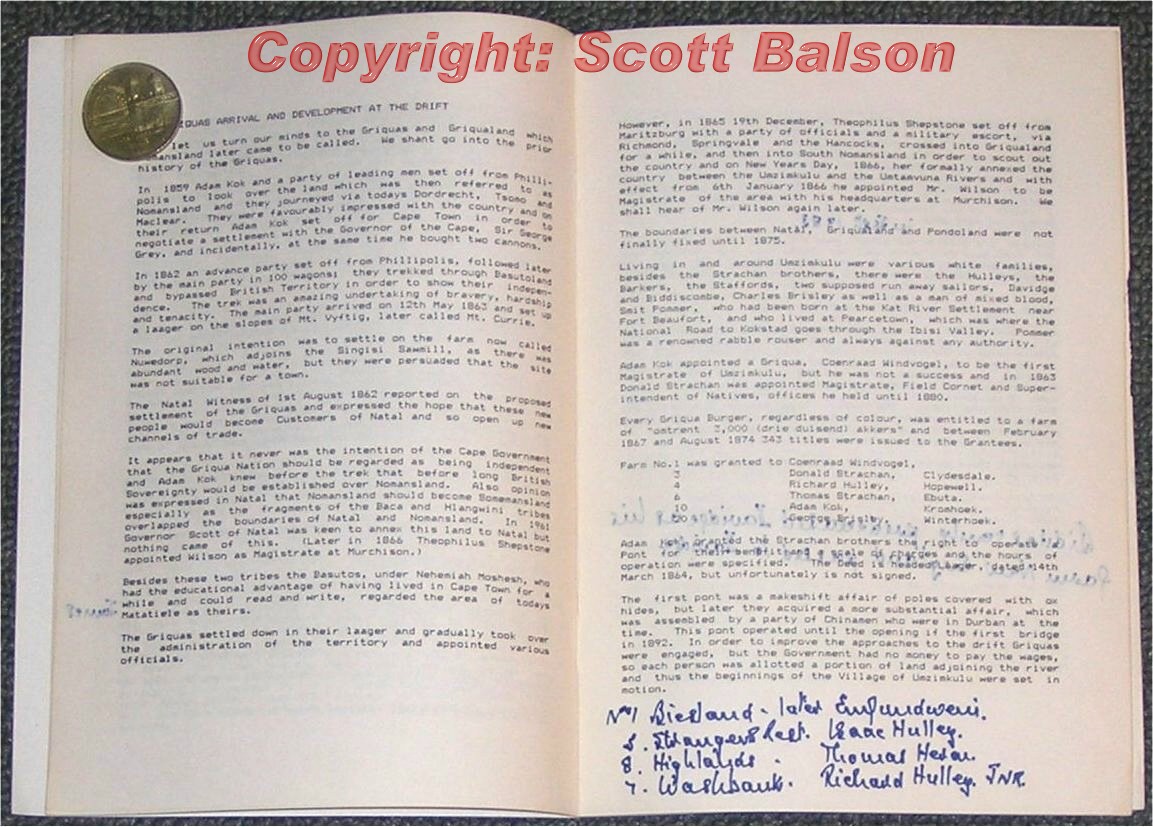 Copyright: Scott Balson
IQUAS ARRIVAL AND DEVELOPMENT AT THE DRIFT
let us turn our minds to the Griquas and Griqualand which
mansland later came to be called. We shant go into the prior
history of the Griquas.
In 1859 Adam Kok and a party of leading men set off from Philli-
polis to look over the land which was then referred to as
Nomansland and they journeyed via todays Dordrecht, Tsomo and
Maclear. They were favourably impressed with the country and on
their return Adam Kok set off for Cape Town in order to
negotiate a settlement with the Governor of the Cape, Sir George
Grey, and incidentally, at the same time he bought two cannons.
In 1862 an advance party set off from Phillipolis, followed later
by the main party in 100 wagons; they trekked through Basutoland
and bypassed British Territory in order to show their indepen-
dence. The trek was an amazing undertaking of bravery, hardship
and tenacity. The main party arrived on 12th May 1863 and set up
a laager on the slopes of Mt. Vyftig, later called Mt. Currie.
The original intention was to settle on the farm now called
Nuwedorp, which adjoins the Singisi Sawmill, as there was
abundant wood and water, but they were persuaded that the site
was not suitable for a town.
The Natal Witness of 1st August 1862 reported on the proposed
settlement of the Griquas and expressed the hope that these new
people would become Customers of Natal and so open up new
channels of trade.
It appears that it never was the intention of the Cape Government
that the Griqua Nation should be regarded as being independent
and Adam Kok knew before the trek that before long British
Sovereignty would be established over Nomansland. Also opinion
was expressed in Natal that Nomansland should become Somemansland
especially as the fragments of the Baca and Hlangwini tribes
overlapped the boundaries of Natal and Nomansland. In 1961
Governor Scott of Natal was keen to annex this land to Natal but
nothing came of this. (Later in 1866 Theophilus Shepstone
appointed Wilson as Magistrate at Murchison.)
Besides these two tribes the Basutos, under Nehemiah Moshesh, who
had the educational advantage of having lived in Cape Town for a
while and could read and write, regarded the area of todays
Matatiele as theirs.
The Griquas settled down in their laager and gradually took over
the administration of the territory and appointed various
officials.
However, in 1865 19th December, Theophilus Shepstone set off from
Maritzburg with a party of officials and a military escort, via
Richmond, Springvale and the Hancocks, crossed into Griqualand
for a while, and then into South Nomansland in order to scout out
the country and on New Years Day, 1866, her formally annexed the
country between the Umzimkulu and the Umtamvuna Rivers and with
effect from 6th January 1866 he appointed Mr. Wilson to be
Magistrate of the area with his headquarters at Murchison. We
shall hear of Mr. Wilson again later.
The boundaries between Natal, Griqualand and Pondoland were not
finally fixed until 1875.
Living in and around Umzimkulu were various white families,
besides the Strachan brothers, there were the Hulleys, the
Barkers, the Staffords, two supposed run away sailors, Davidge
and Biddiscombe, Charles Brisley as well as a man of mixed blood,
Smit Pommer, who had been born at the Kat River Settlement near
Fort Beaufort, and who lived at Pearcetown, which was where the
National Road to Kokstad goes through the Ibisi Valley. Pommer
was a renowned rabble rouser and always against any authority.
Adam Kok appointed a Griqua, Coenraad Windvogel, to be the first
Magistrate of Umzimkulu, but he was not a success and in 1863
Donald Strachan was appointed Magistrate, Field Cornet and Super-
intendent of Natives, offices he held until 1880.
Every Griqua Burger, regardless of colour, was entitled to a farm
of "omtrent 3,000 (drie duisend) akkers" and between February
1867 and August 1874 343 titles were issued to the Grantees.
Farm No.1 was granted to Coenraad Windvogel,
3 Donald Strachan, Clydesdale.
4 Richard Hulley, Hopewell.
6 Thomas Strachan, Ebuta.
10 Adam Kok, Kromhoek.
20 George Brisley, Winterhoek.
Adam Kok granted the Strachan brothers the right to operate a
Pont for their benefit and a scale of charges and the hours of
operation were specified. The Deed is headed Laager, dated 14th
March 1864, but unfortunately is not signed.
The first pont was a makeshift affair of poles covered with ox
hides, but later they acquired a more substantial affair, which
was assembled by a party of Chinamen who were in Durban at the
time. This pont operated until the opening if the first bridge
in 1892. In order to improve the approaches to the drift Griquas
were engaged, but the Government had no money to pay the wages,
so each person was allotted a portion of land adjoining the river
and thus the beginnings of the Village of Umzimkulu were set in
motion.
No 1 Biesland - later Emfundweni.
5. Strangers Rest. Isaac Hulley.
8. Highlands. Thomas
7. Washbank. Richard Hulley. JNR.